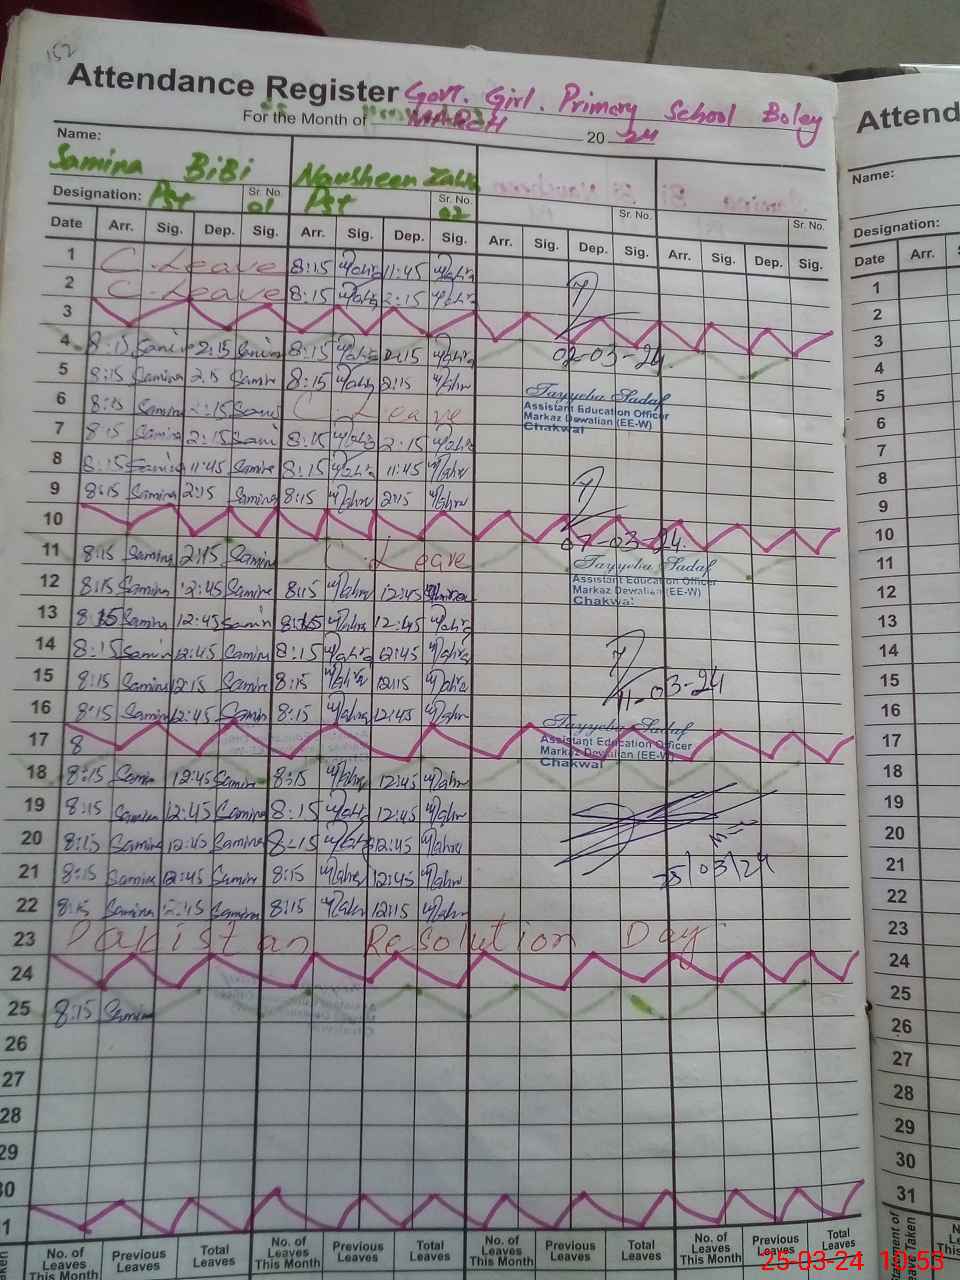 152
Attendance Register Govt. Girl. Primary School Boley
For the Month of MARCH 2024
Name:
Samina BiBi Nausheen Zahra
Designation: Pst Sr. No. 01 Pst Sr. No. 02 Sr. No. Sr. No.
Date Arr. Sig. Dep. Sig. Arr. Sig. Dep. Sig. Arr. Sig. Dep. Sig. Arr. Sig. Dep. Sig.
1 C. Leave 8:15 Zahra 11:45 Zahra
2 C. Leave 8:15 Zahra 2:15 Zahra
3
4 8:15 Samina 2:15 Samina 8:15 Zahra 2:15 Zahra
02-03-24
5 8:15 Samina 2:15 Samina 8:15 Zahra 2:15 Zahra
Tayyeba Sadaf
Assistant Education Officer
Markaz Dewalian (EE-W)
Chakwal
6 8:15 Samina 2:15 Sami C. Leave
7 8:15 Samina 2:15 Sami 8:15 Zahra 2:15 Zahra
8 8:15 Samina 11:45 Samina 8:15 Zahra 11:45 Zahra
9 8:15 Samina 2:15 Samina 8:15 Zahra 2:15 Zahra
10
07-03-24
11 8:15 Samina 2:15 Samina C. Leave
Tayyeba Sadaf
Assistant Education Officer
Markaz Dewalian (EE-W)
Chakwal
12 8:15 Samina 12:45 Samina 8:15 Zahra 12:45
13 8:15 Samina 12:45 Samina 8:15 Zahra 12:45 Zahra
14 8:15 Samina 12:45 Samina 8:15 Zahra 12:45 Zahra
15 8:15 Samina 12:15 Samina 8:15 Zahra 12:15 Zahra
11-03-24
16 8:15 Samina 12:45 Samina 8:15 Zahra 12:45 Zahra
17 8
Tayyeba Sadaf
Assistant Education Officer
Markaz Dewalian (EE-W)
Chakwal
18 8:15 Samina 12:45 Samina 8:15 Zahra 12:45 Zahra
19 8:15 Samina 12:45 Samina 8:15 Zahra 12:45 Zahra
20 8:15 Samina 12:45 Samina 8:15 Zahra 12:45 Zahra
21 8:15 Samina 12:45 Samina 8:15 Zahra 12:45 Zahra
/03/24
22 8:15 Samina 12:15 Samina 8:15 Zahra 12:15 Zahra
23 Pakistan Resolution Day
24
25 8:15 Samina
26
27
28
29
30
31
No. of Leaves This Month Previous Leaves Total Leaves No. of Leaves This Month Previous Leaves Total Leaves No. of Leaves This Month Previous Leaves Total Leaves No. of Leaves This Month Previous Leaves Total Leaves
Attend
Name:
Designation:
Date Arr.
1
2
3
4
5
6
7
8
9
10
11
12
13
14
15
16
17
18
19
20
21
22
23
24
25
26
27
28
29
30
31
25-03-24 10:53